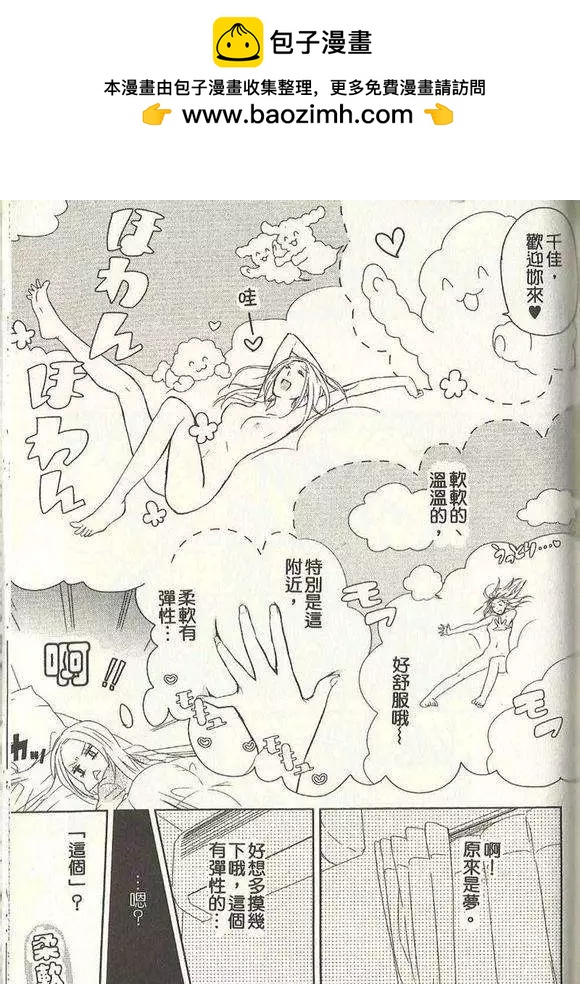 包子漫畫
本漫畫由包子漫畫收集整理，更多免費漫畫請訪問
👉 www.baozimh.com 👈
千佳，
歡迎妳來♥
哇♡
ほわん
ほわん
軟軟的、
溫溫的，
うっとり…♡
特別是這
附近，
柔軟有
彈性…
好舒服哦～
モミ
モミ
啊!!
啊！
原來是夢。
好想多摸幾
下哦，這個
有彈性的…
…嗯？
「這個」？
柔軟